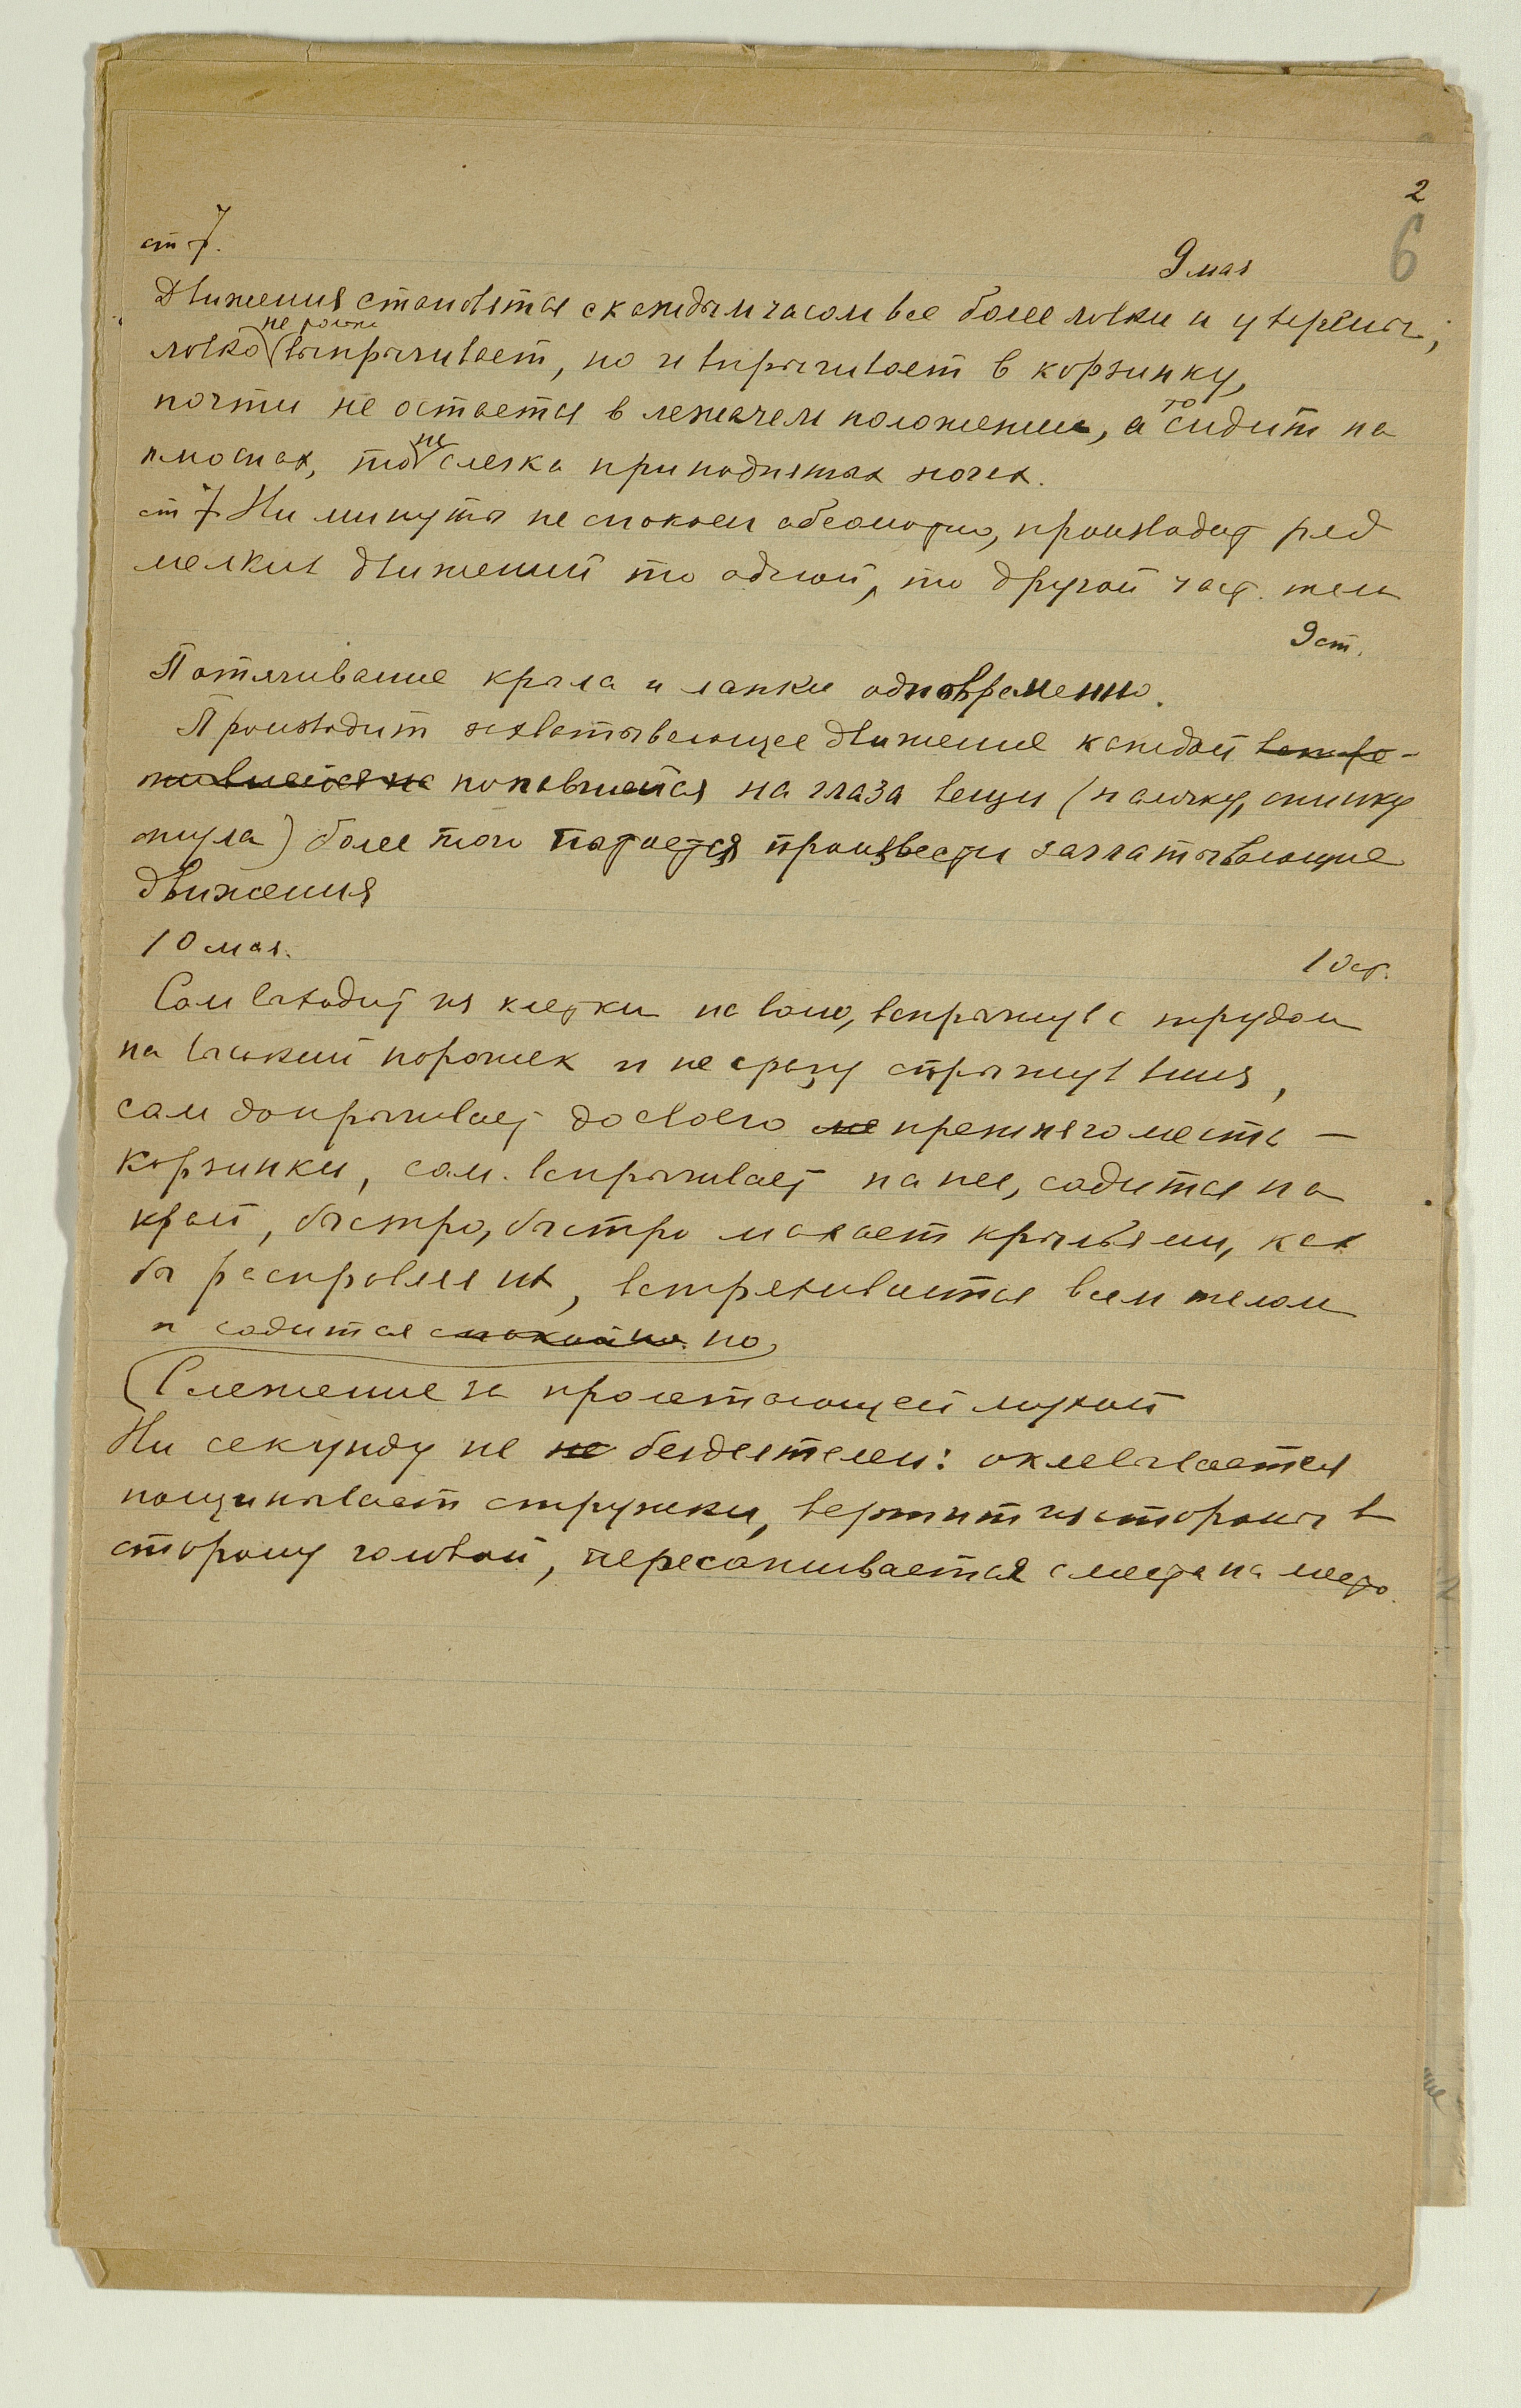 2
6
ст 7.
9 мая
Движения становятся с каждым часом все более ловки и уверены;
ловко не только выпрыгивает, но и впрыгивает в корзинку,
почти не остается в лежачем положении, а то сидит на
плюснах, то на слегка приподнятых ногах.
ст 7 Ни минуты не спокоен абсолютно, производит ряд
мелких движений то одной, то другой част. тела
9 ст.
Потягивание крыла и лапки одновременно.
Производит схватывающее движение каждой
попавшейся на глаза вещи (палочку, спинку
стула) более того пытается произвести заглатывающие
движения
10 мая.
10 ст.
Сам выходит из клетки на волю, вспрыгнув с трудом
на высокий порожек и не сразу спрыгнув вниз,
сам допрыгивает до своего прежнего места —
корзинки, сам вспрыгивает на нее, садится на
край, быстро, быстро махает крыльями, как
бы расправляя их, встряхивается всем телом
и садится спокойно. но,
(Слежение за пролетающей мухой
Ни секунду не не бездеятелен: оклевывается
пощипывает стружки, вертит из стороны в
сторону головой, пересаживается с места на место.